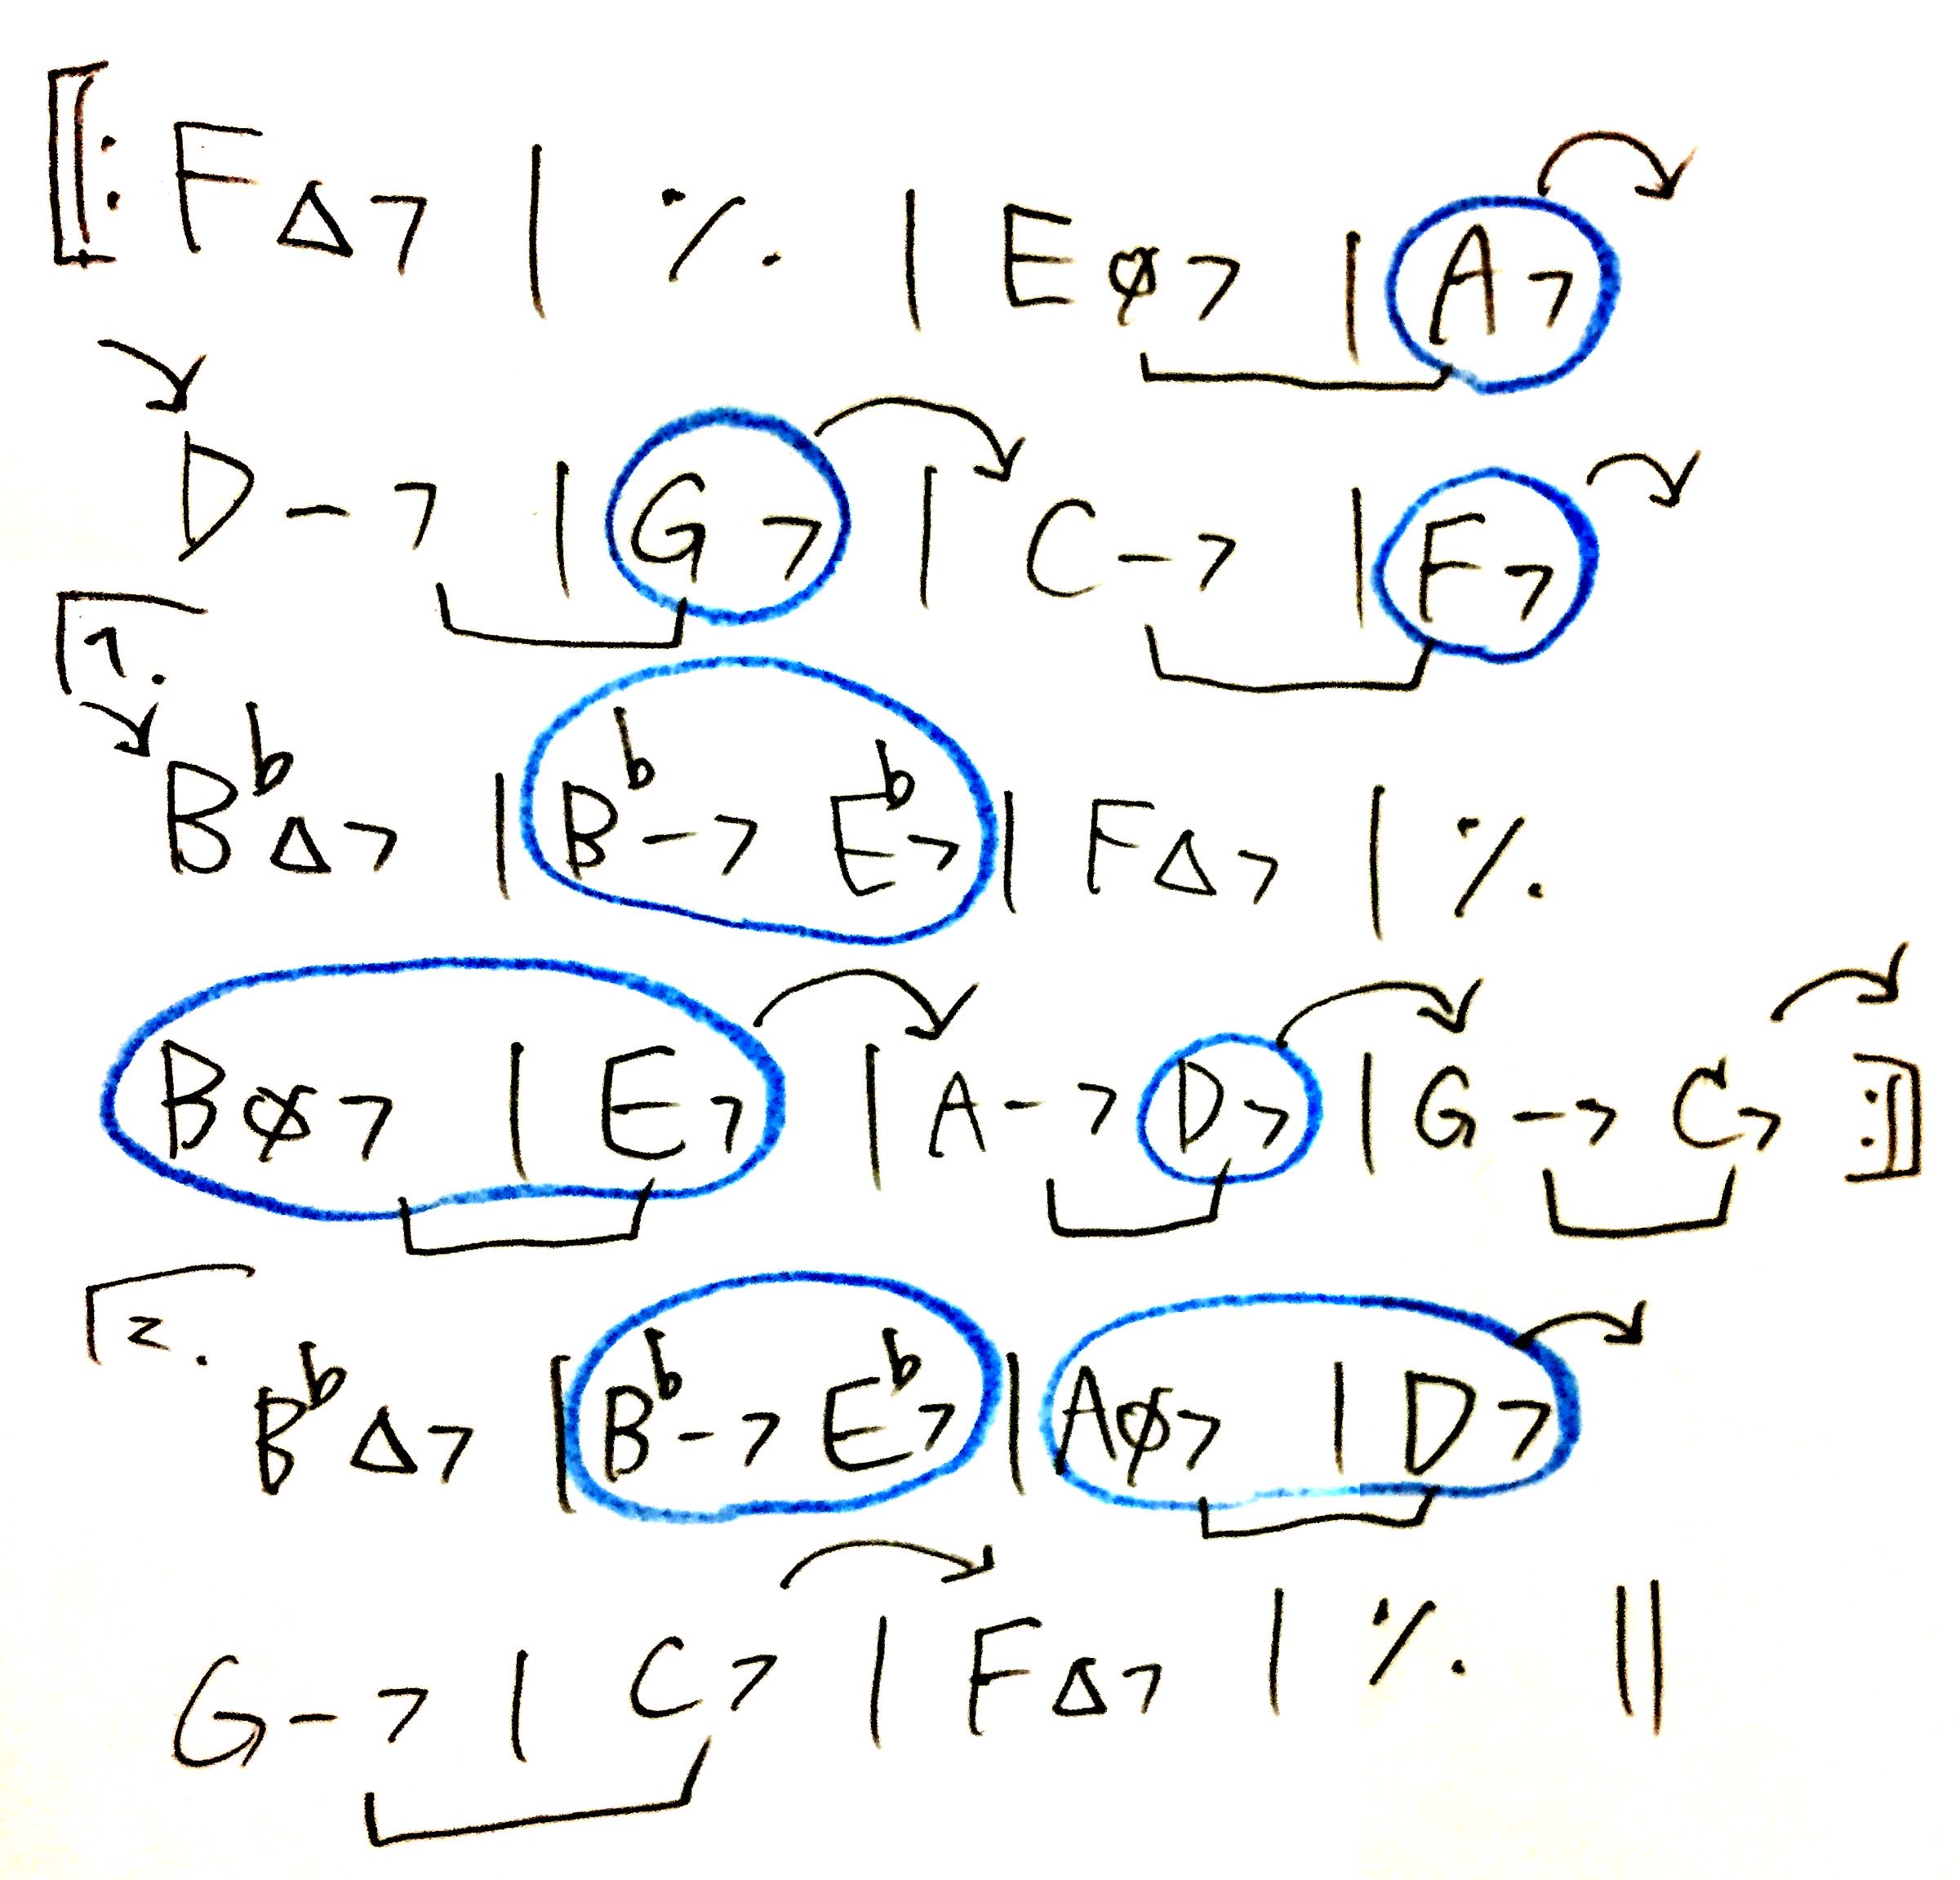 [[: F△7 | ٪ | Eø7 | A7
D-7 | G7 | C-7 | F7
1.
B♭△7 | B♭-7 E♭7 | F△7 | ٪
Bø7 | E7 | A-7 D7 | G-7 C7 :]]
2.
B♭△7 | B♭-7 E♭7 | Aø7 | D7
G-7 | C7 | F△7 | ٪ ||